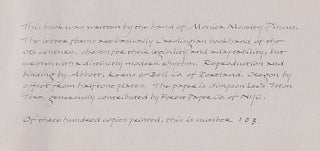 This book was written by the hand of Monica Moseley Pincus.
The letter forms are basically Carolingian bookhand of the
9th century, chosen for their legibility and adaptability, but
written with a distinctly modern rhythm. Reproduction and
binding by Abbott, Kerns & Bell Co. of Portland, Oregon by
offset from halftone plates. The paper is Simpson Lee's Teton
Text, generously contributed by Forest Paper Co. of NYC.
Of three hundred copies printed, this is number 103.